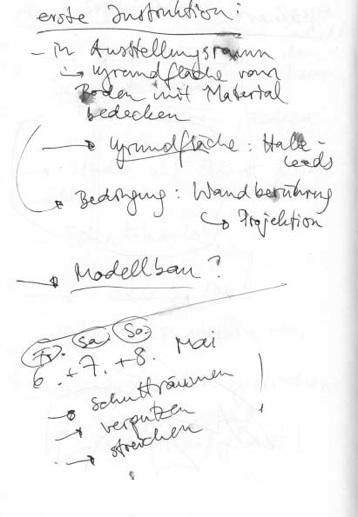 erste Instruktion:
- in Ausstellungsraum
↳ Grundfläche vom
Boden mit Material
bedecken
→ Grundfläche: Halle-
Leeds
→ Bedingung: Wandberührung
↳ Projektion
→ Modellbau?
Fr. Sa. So.
6. + 7. + 8. Mai
→ Schutträumen
→ verputzen
→ streichen